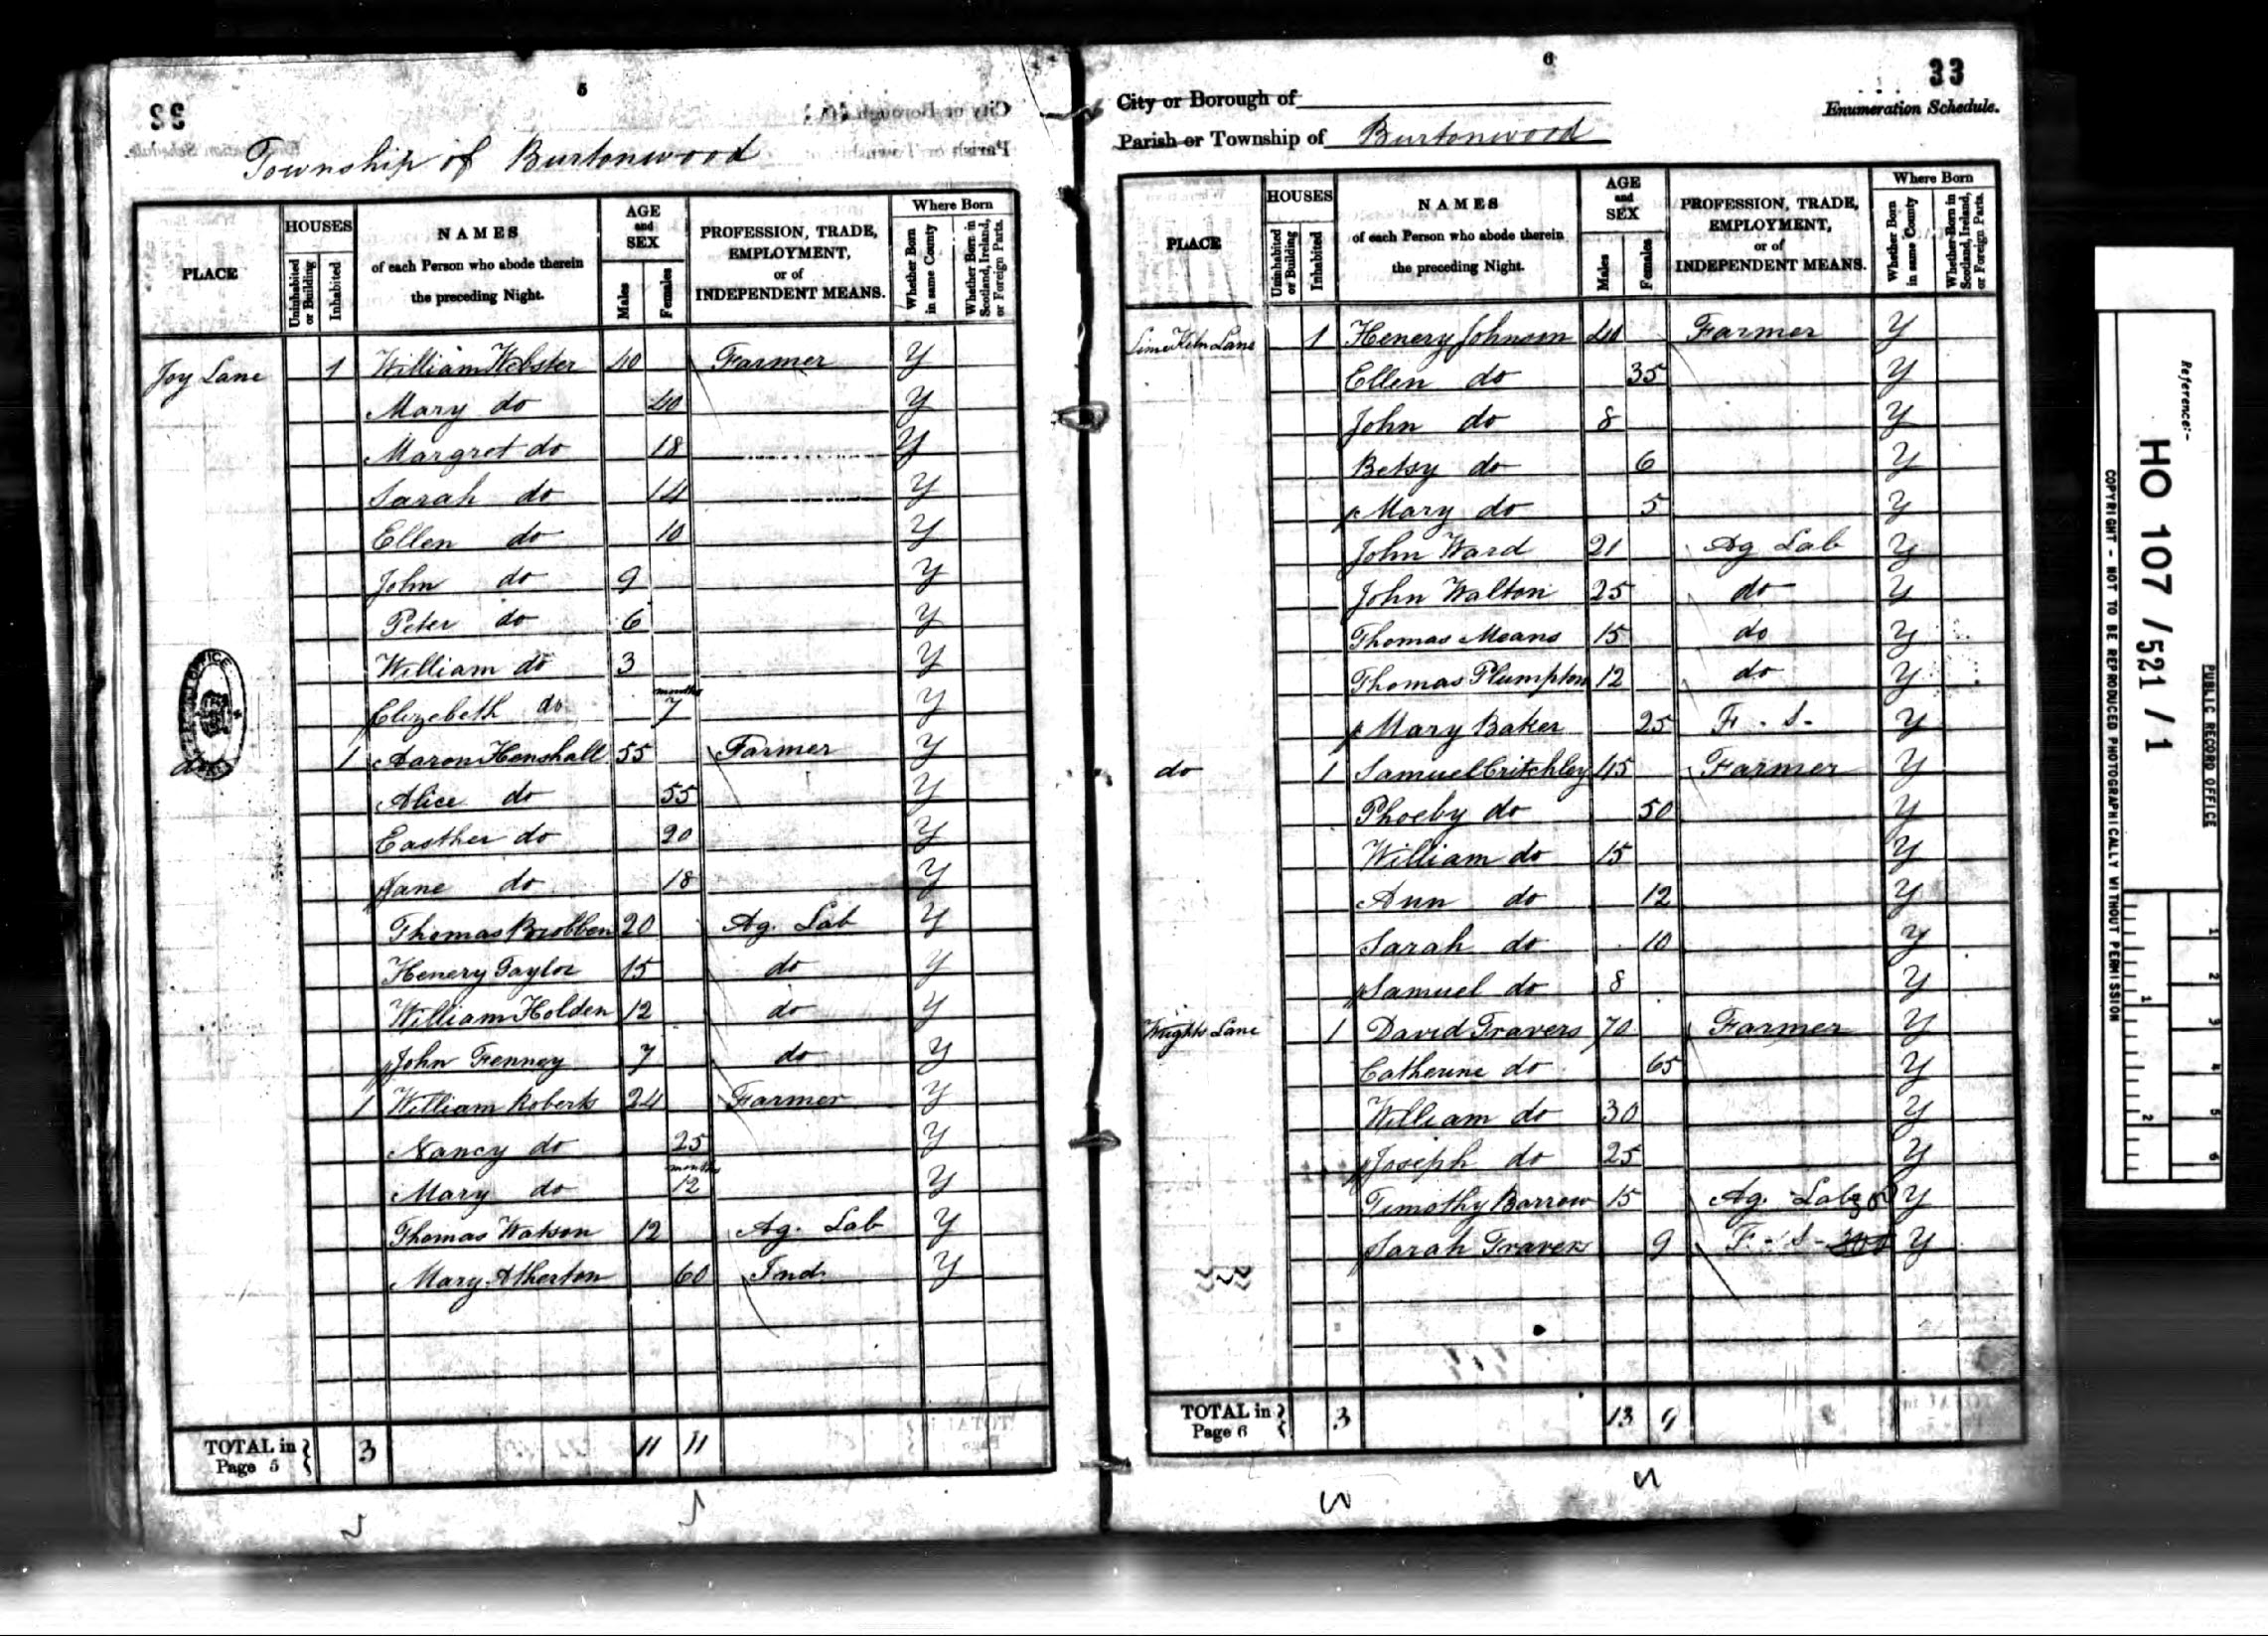 5
Township of Burtonwood
PLACE
HOUSES
Uninhabited or Building
Inhabited
NAMES
of each Person who abode therein
the preceding Night.
AGE and SEX
Males
Females
PROFESSION, TRADE,
EMPLOYMENT,
or of
INDEPENDENT MEANS.
Where Born
Whether Born in same County
Whether Born in Scotland, Ireland, or Foreign Parts.
Joy Lane 1 William Webster 40 Farmer Y
Mary do 40 Y
Margret do 18 Y
Sarah do 14 Y
Ellen do 10 Y
John do 9 Y
Peter do 6 Y
William do 3 Y
Elizebeth do months 7 Y
do 1 Aaron Henshall 55 Farmer Y
Alice do 55 Y
Easther do 20 Y
Jane do 18 Y
Thomas 20 Ag. Lab Y
Henery Taylor 15 do Y
William Holden 12 do Y
John Fenney 7 do Y
1 William Roberts 24 Farmer Y
Nancy do 25 Y
Mary do months 12 Y
Thomas Watson 12 Ag. Lab Y
Mary Atherton 60 Ind. Y
TOTAL in Page 5 3 11 11
6
33
City or Borough of
Enumeration Schedule.
Parish or Township of Burtonwood
PLACE
HOUSES
Uninhabited or Building
Inhabited
NAMES
of each Person who abode therein
the preceding Night.
AGE and SEX
Males
Females
PROFESSION, TRADE,
EMPLOYMENT,
or of
INDEPENDENT MEANS.
Where Born
Whether Born in same County
Whether Born in Scotland, Ireland, or Foreign Parts.
Lime Kiln Lane 1 Henery Johnson 40 Farmer Y
Ellen do 35 Y
John do 8 Y
Betsy do 6 Y
Mary do 5 Y
John Ward 21 Ag Lab Y
John Walton 25 do Y
Thomas Means 15 do Y
Thomas Plumpton 12 do Y
Mary Baker 25 F. S. Y
do 1 Samuel Critchley 45 Farmer Y
Phoeby do 50 Y
William do 15 Y
Ann do 12 Y
Sarah do 10 Y
Samuel do 8 Y
Wrights Lane 1 David Travers 70 Farmer Y
Catherine do 65 Y
William do 30 Y
Joseph do 25 Y
Timothy Barrow 15 Ag. Lab Y
Sarah Travers 9 F. S. Y
TOTAL in Page 6 3 13 9
Reference:-
HO 107 / 521 / 1
PUBLIC RECORD OFFICE
COPYRIGHT - NOT TO BE REPRODUCED PHOTOGRAPHICALLY WITHOUT PERMISSION
1
2
3
4
5
6
1
2